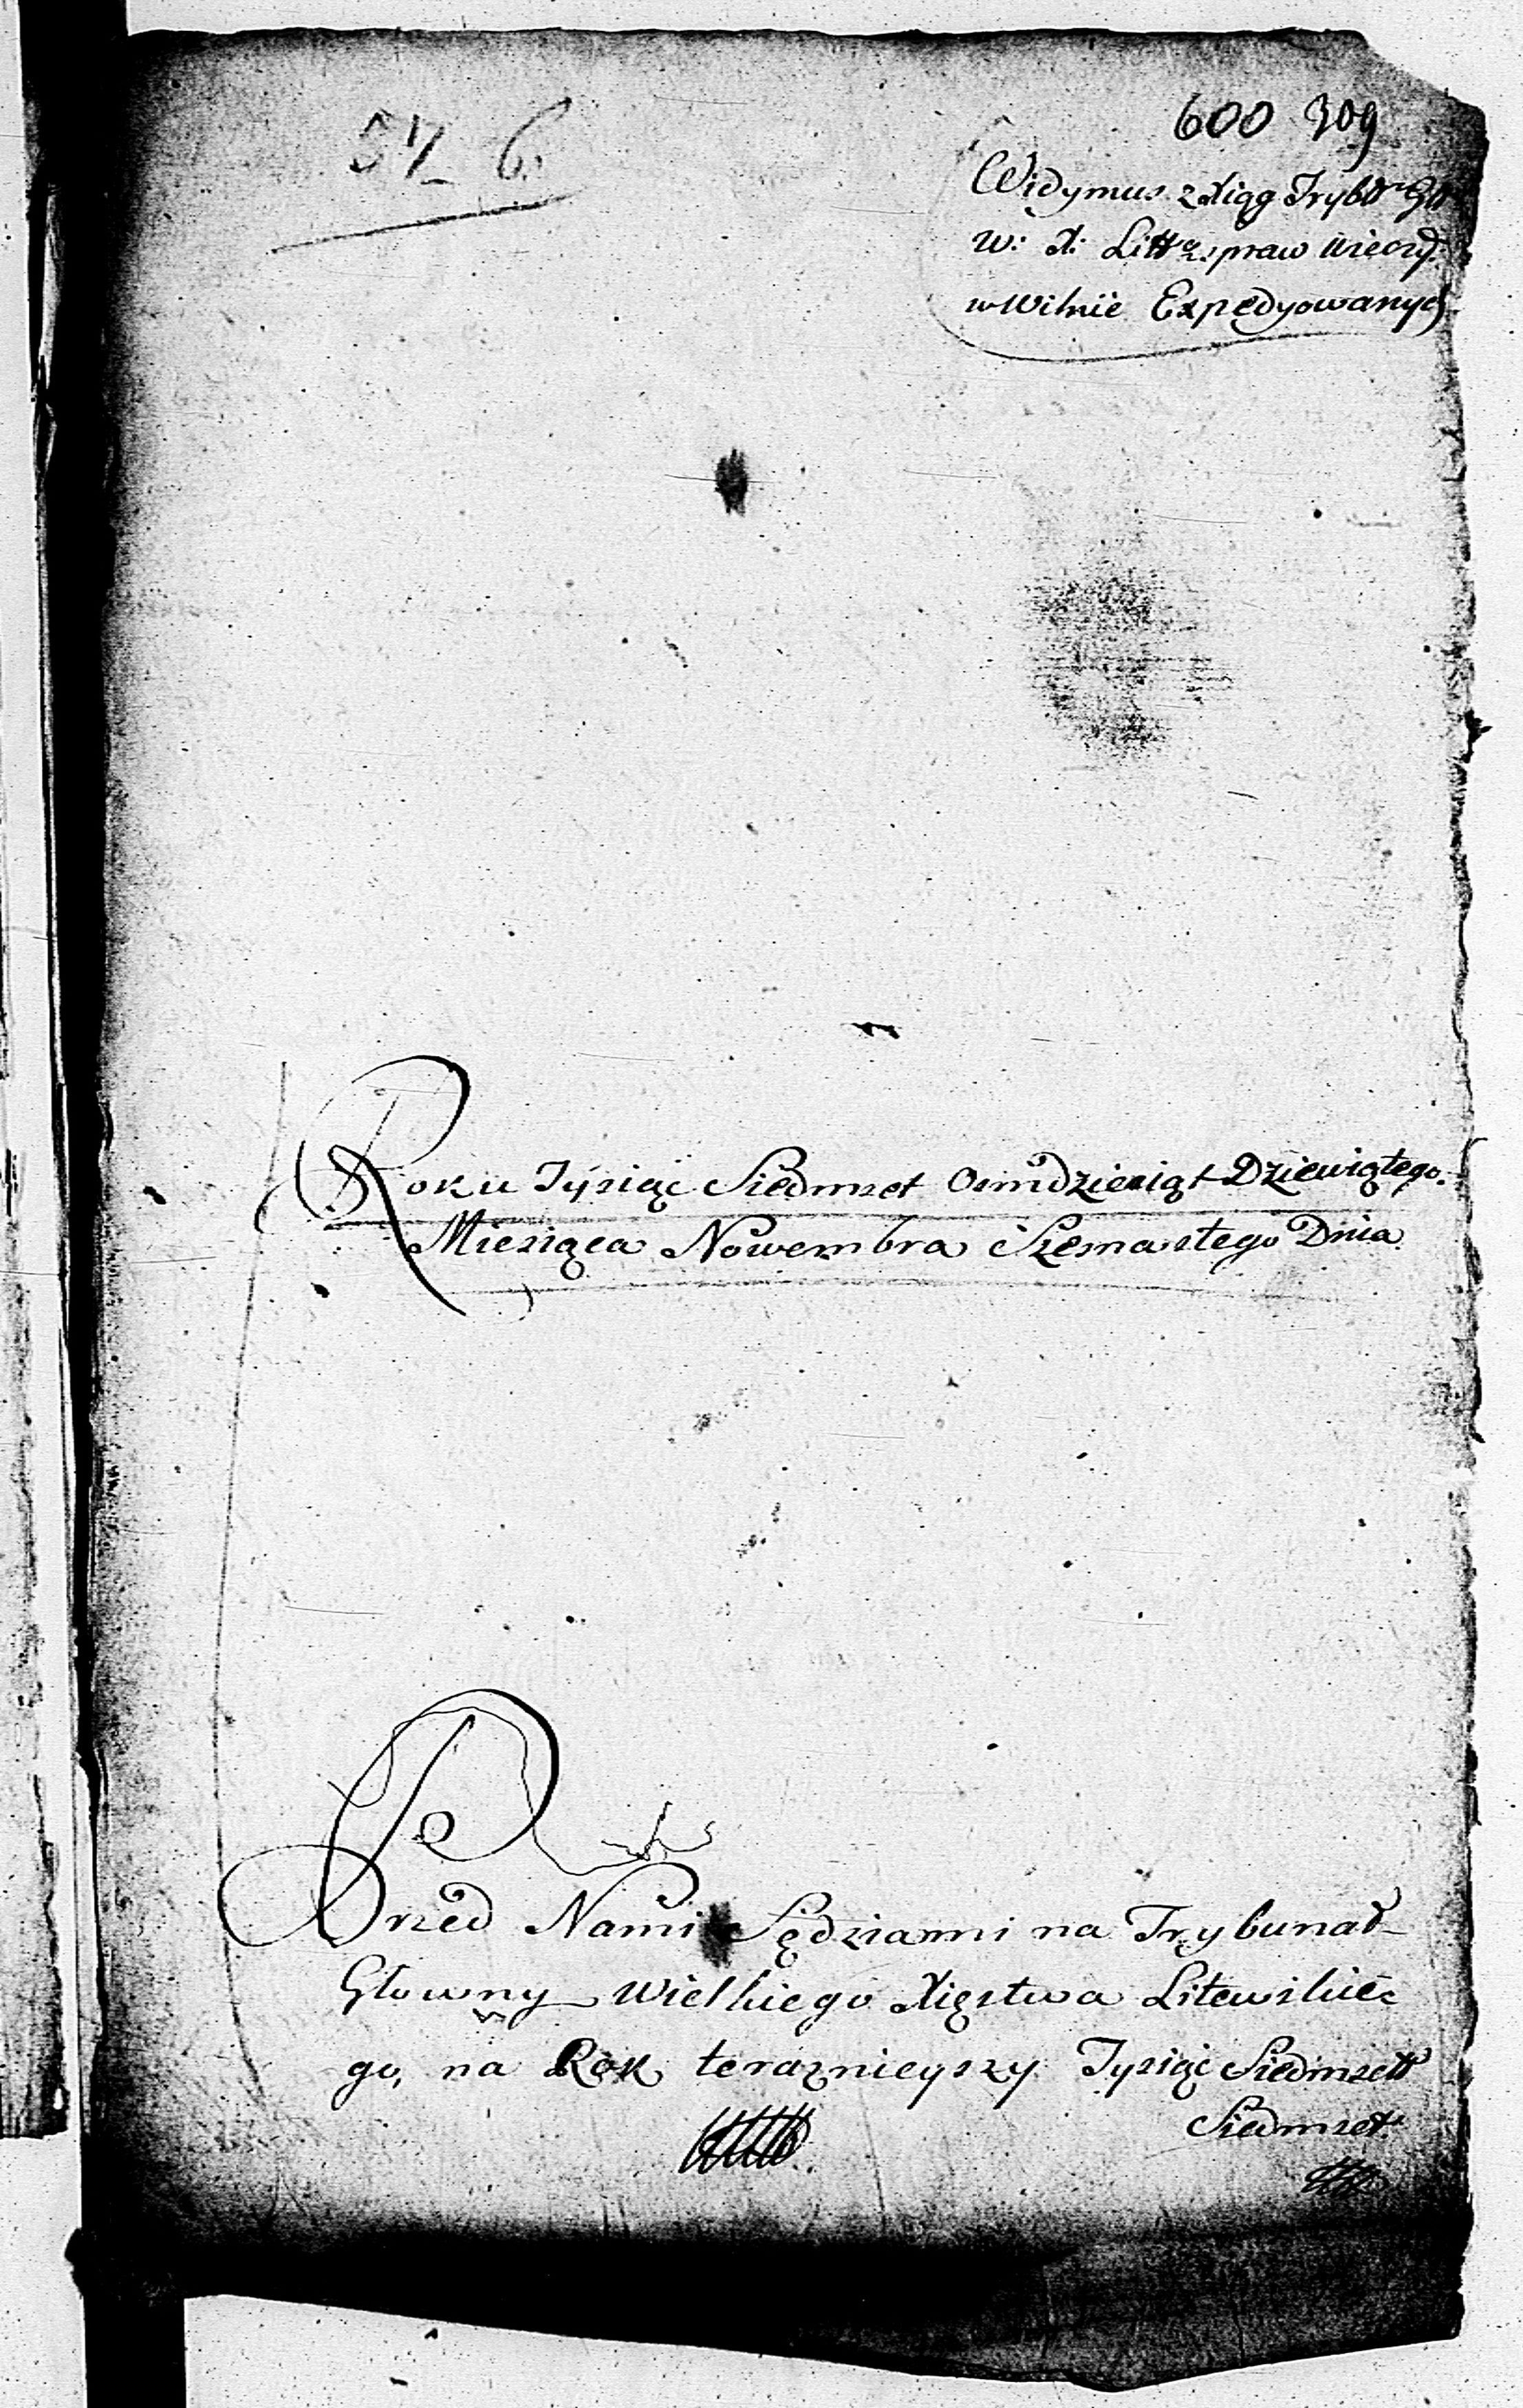 57 6.
600 309
Widymus z Xiąg Trybu Gł
W: X: Litt z spraw wieczy.
w Wilnie Expedyowanych
Roku Tysiąc Siedmset Osmdziesiąt Dziewiątego.
Miesiąca Nowembra Szesnastego Dnia.
Przed Nami Sędziami na Trybunał
Głowny Wielkiego Xięstwa Litewskie
go, na Rok teraznieyszy Tysiąc Siedmsett
Siedmset